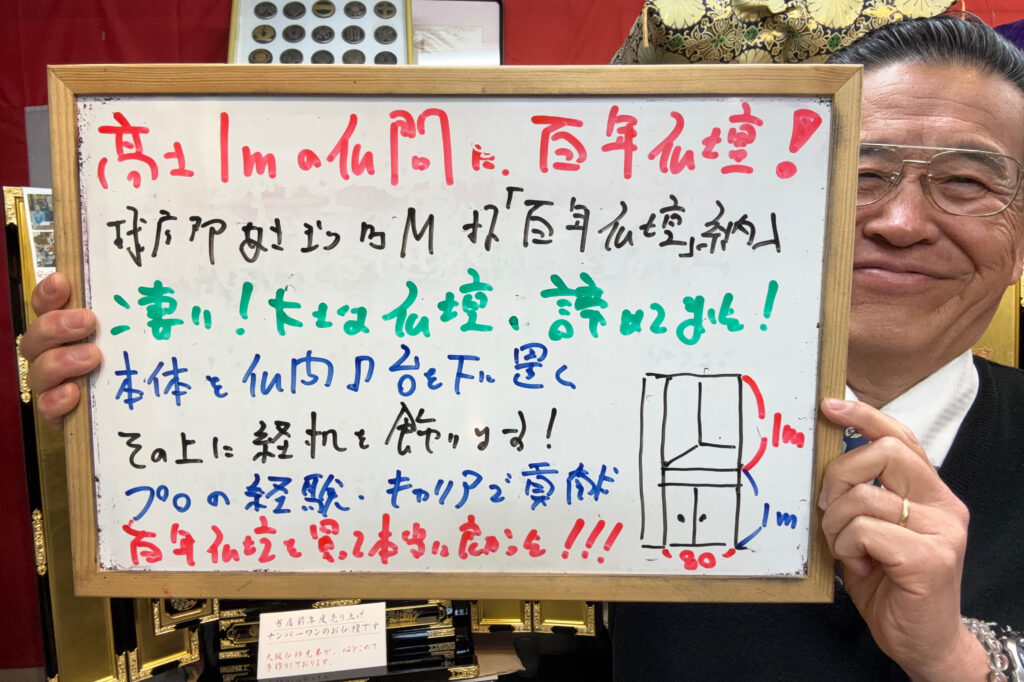 高さ1mの仏間に、百年仏壇!
我孫子市 M様「百年仏壇」納入
凄い!大きな仏壇、諦めてました!
本体を仏間♪台を下に置く
その上に経机を飾ります!
プロの経験・キャリアで貢献
百年仏壇を買って本当に良かった!!!
1m
1m
80
当店前年度売り上げ
ナンバーワンのお仏壇です
大阪仏師兄弟が、心をこめて
手作りしております。